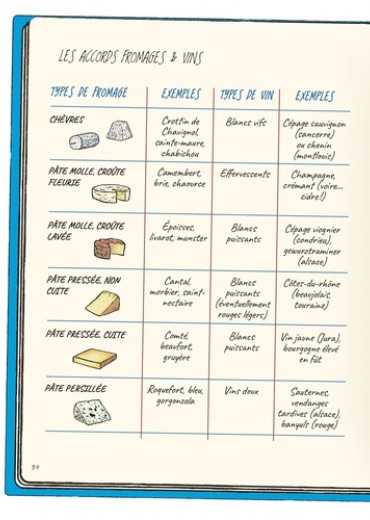 LES ACCORDS FROMAGES & VINS
TYPES DE FROMAGE EXEMPLES TYPES DE VIN EXEMPLES
CHÈVRES
Crottin de
Chavignol,
sainte-maure,
chabichou
Blancs vifs
Cépage sauvignon
(sancerre)
ou chenin
(montlouis)
PÂTE MOLLE, CROÛTE
FLEURIE
Camembert,
brie, chaource
Effervescents
Champagne,
crémant (voire...
cidre!)
PÂTE MOLLE, CROÛTE
LAVÉE
Époisses,
livarot, munster
Blancs
puissants
Cépage viognier
(condrieu),
gewurztraminer
(alsace)
PÂTE PRESSÉE, NON
CUITE
Cantal,
morbier, saint-
nectaire
Blancs
puissants
(éventuellement
rouges légers)
Côtes-du-rhône
(beaujolais,
touraine)
PÂTE PRESSÉE, CUITE
Comté,
beaufort,
gruyère
Blancs
puissants
Vin jaune (Jura),
bourgogne élevé
en fût
PÂTE PERSILLÉE
Roquefort, bleu,
gorgonzola
Vins doux
Sauternes,
vendanges
tardives (alsace),
banyuls (rouge)
34